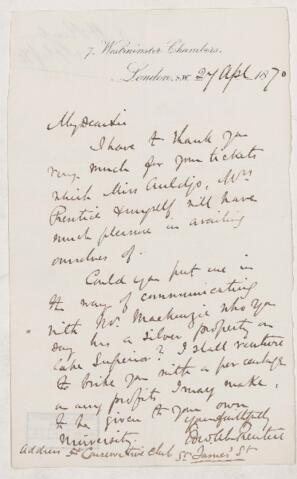 7, Westminster Chambers,
London, S.W. 27 Apl 1870
My dear Sir
I have to thank you
very much for your tickets
which Miss Auldjo, Mrs
Prentice & myself will have
much pleasure in availing
ourselves of.
Could you put me in
the way of communicating
with Mr. Mackenzie who you
say has a silver property on
Lake Superior? I shall venture
to bribe you with a percentage
on any profits I may make,
to be given to your own
University. Yours faithfully
Prentice
Address St Conservative Club St James' St